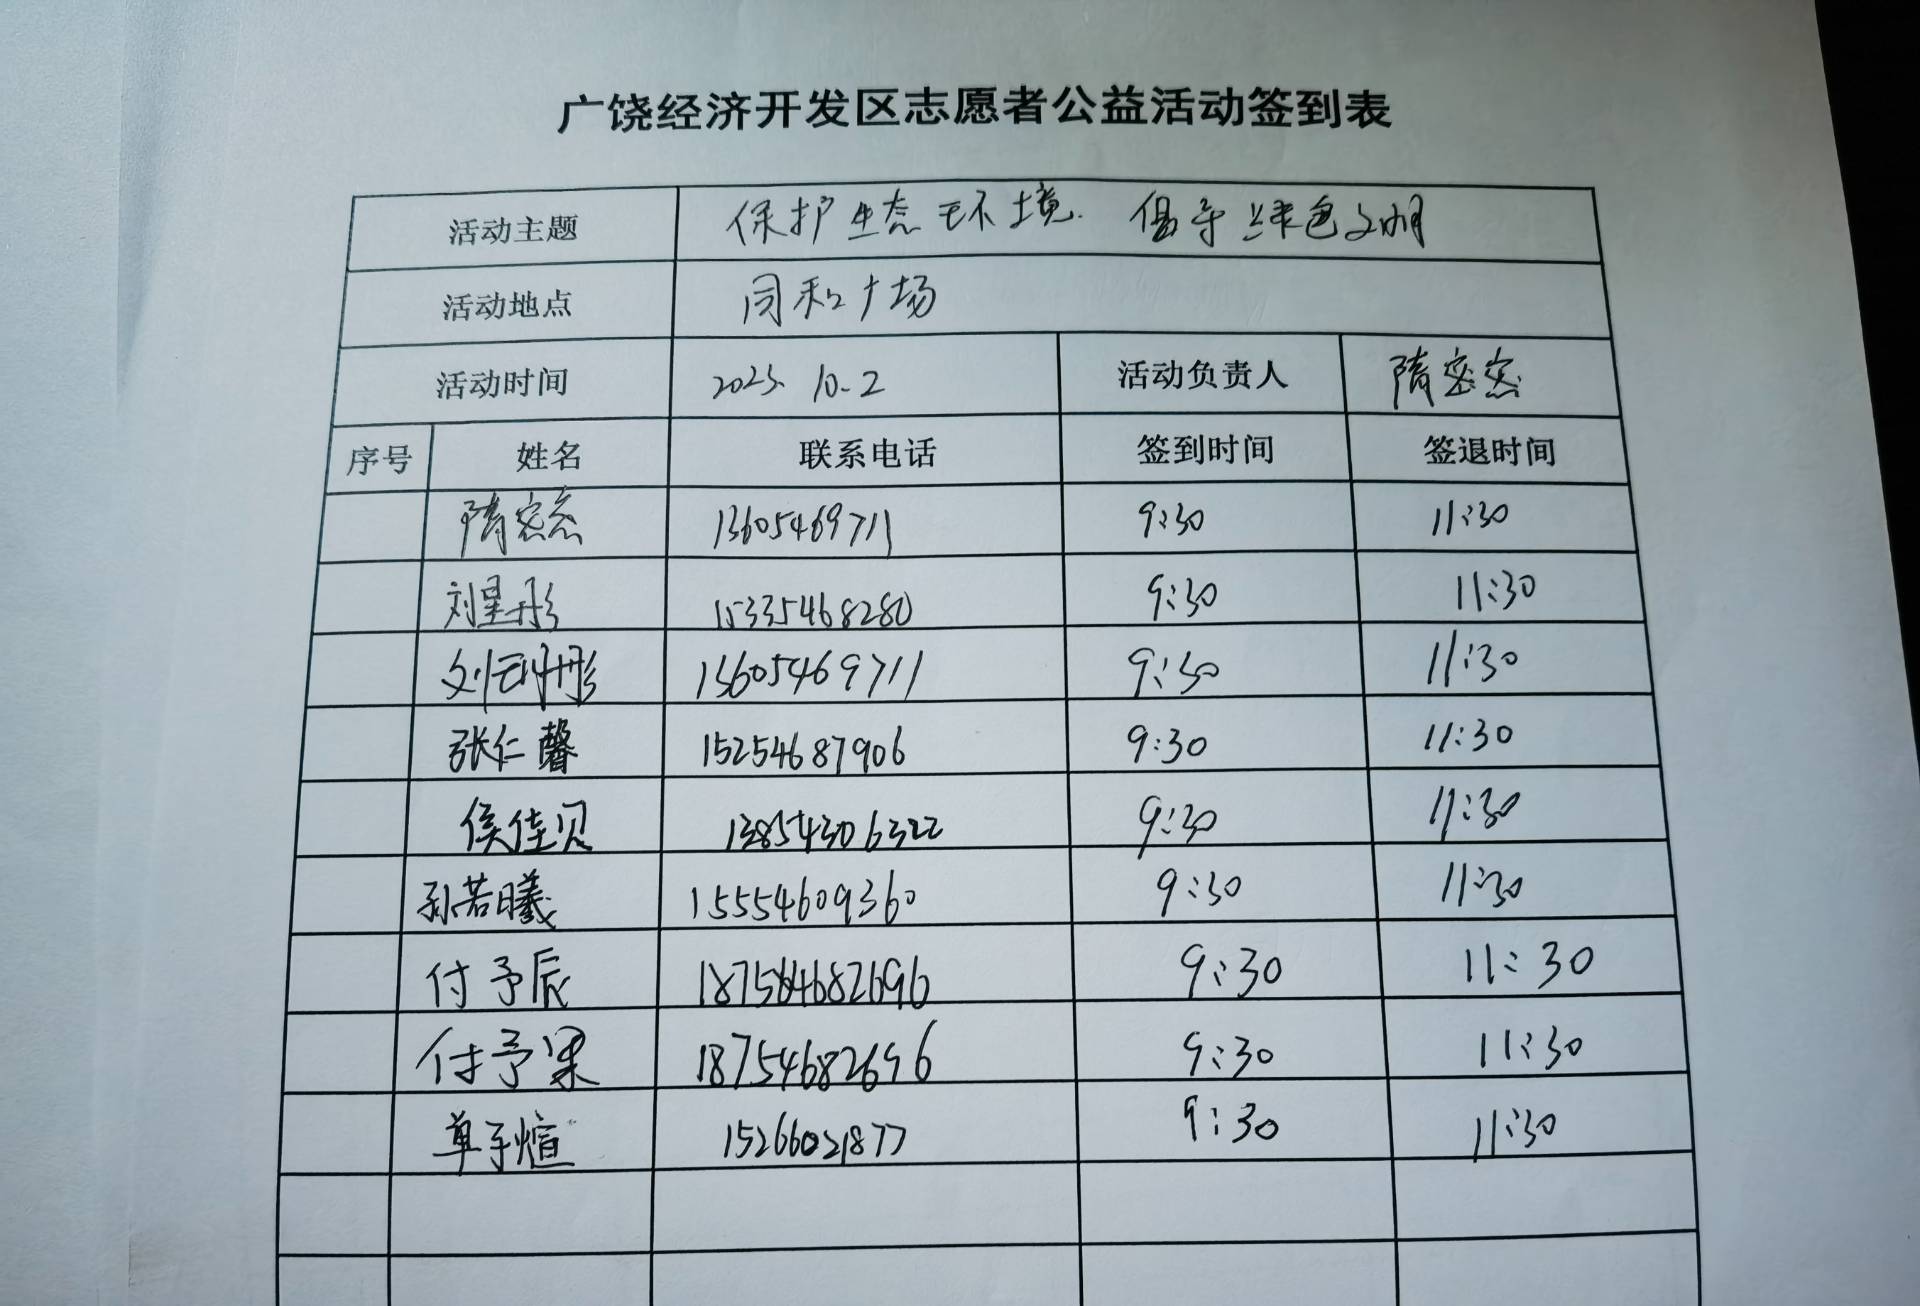 广饶经济开发区志愿者公益活动签到表
活动主题 保护生态环境. 倡导绿色文明
活动地点 同和广场
活动时间 2023. 10.2 活动负责人 隋密密
序号 姓名 联系电话 签到时间 签退时间
隋密密 13605469711 9:30 11:30
刘星彤 15335468280 9:30 11:30
刘雨彤 13605469711 9:30 11:30
张仁馨 15254687906 9:30 11:30
侯佳贝 13854306322 9:30 11:30
孙若曦 15554609360 9:30 11:30
付予辰 18754682696 9:30 11:30
付予果 18754682696 9:30 11:30
单子煊 15266021877 9:30 11:30